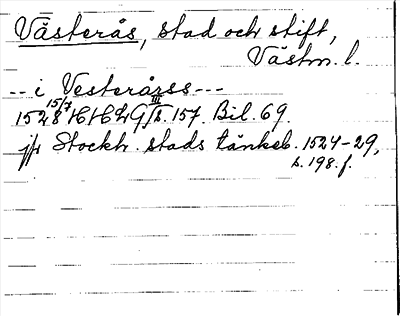 Västerås, stad och stift,
Västm. l.
-- i Vesteråsss ---
1528 15/7 HH Z G III s. 157. Bil. 69.
jfr Stockh. stads tänkeb. 1524-29,
s. 198. f.